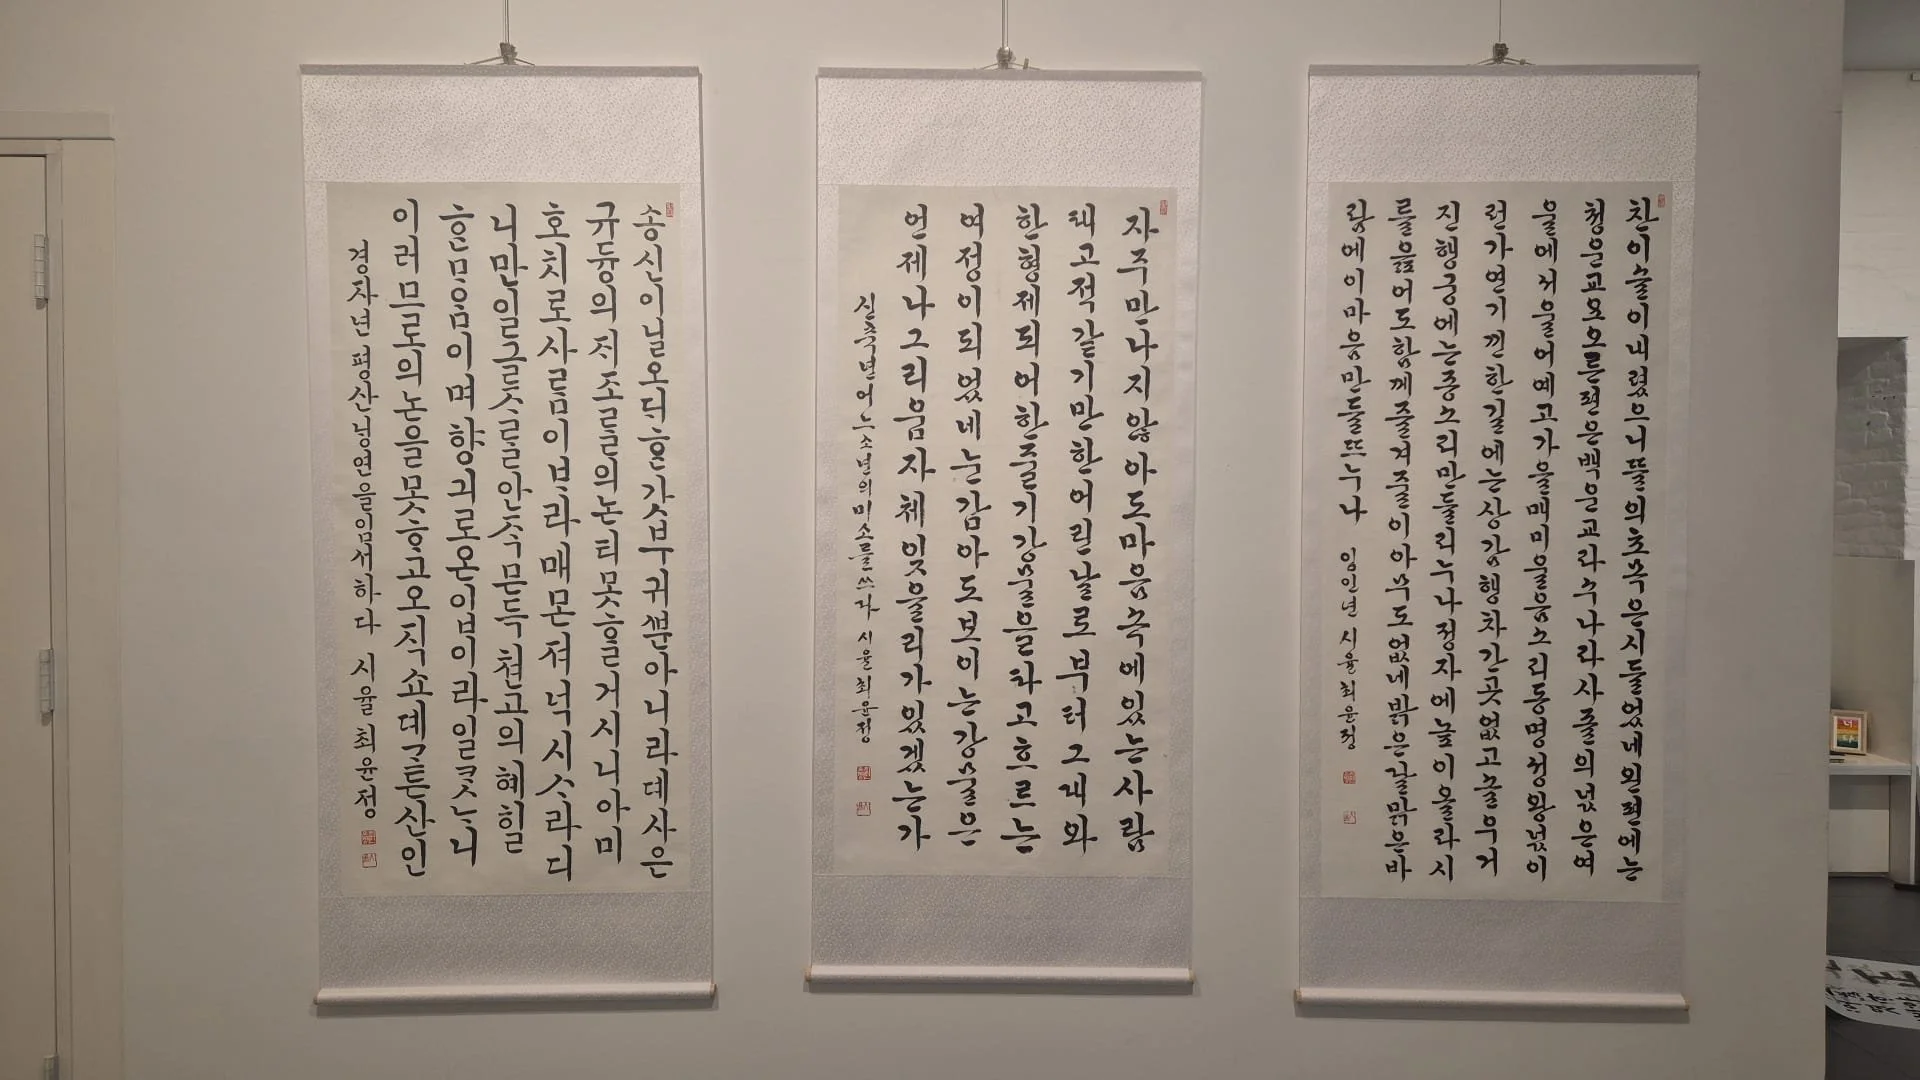 송신이닐오ᄃᆡᄒᆞᆫ갓부귀ᄲᅮᆫ아니라뎨사은
규듕의ᄌᆡ조ᄅᆞᆯ의논티못ᄒᆞᆯ거시니아미
호치로사ᄅᆞᆷ이ᄇᆞ라매몬져넉시ᄉᆞ라디
니만일글ᄉᆞᄅᆞᆯ 믄득쳔고의혜힐
흔ᄆᆞᄋᆞᆷ이며향긔로온입이라일ᄏᆞᆺᄂᆞ니
이러므로의논을못ᄒᆞ고오직쇼뎨ᄀᆞᄐᆞᆫ산인
경자년 평산냉연을임서하다 시율 최윤정
자주만나지않아도마음속에있는사람
태고적같기만한어린날로부터그대와
한형제되어한줄기강물을타고흐르는
여정이되었네눈감아도보이는강물은
언제나그리움자체잊을리가있겠는가
신축년어느소년의미소를쓰다 시율최윤정
찬이슬이내렸으니뜰의초목은시들었네왼편에는
청운교요오른편은백운교라수나라사졸의넋은여
울에서울어예고가을매미울음소리동명성왕넋이
런가연기낀한길에는상감행차간곳없고솔우거
진행궁에는종소리만들리누나정자에높이올라시
를읊어도함께즐겨줄이아무도없네밝은달맑은바
람에이마음만들뜨누나 임인년 시율최윤정